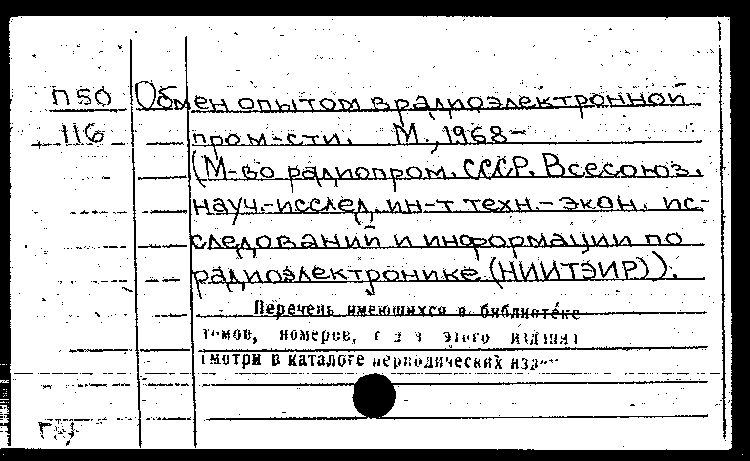 П50 Обмен опытом в радиоэлектронной
116 пром-сти. М., 1968-
(М-во радиопром. СССР. Всесоюз.
науч.-исслед. ин-т техн.-экон. ис-
следований и информации по
радиоэлектронике (НИИТЭИР)).
Перечень имеющихся в библиотеке
томов, номеров, этого издания
смотри в каталоге периодических изд